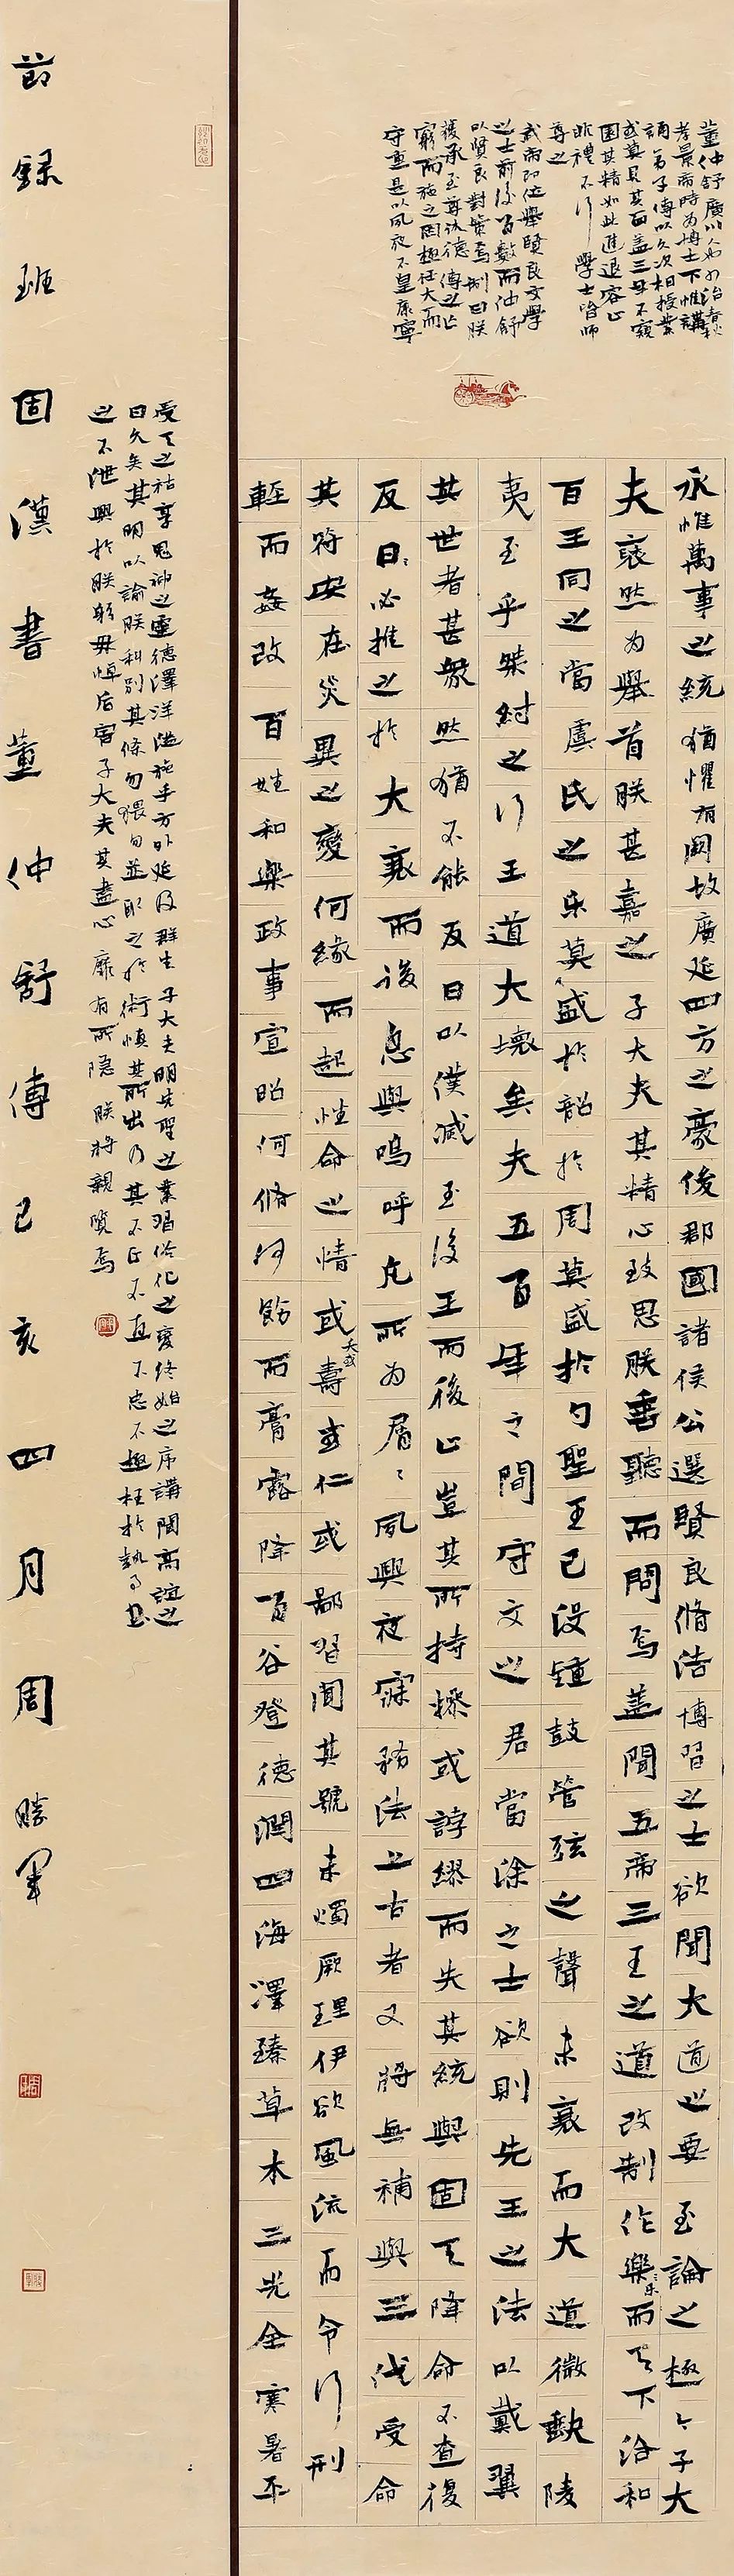 董仲舒廣川人也少治春秋
孝景帝時為博士下帷講
誦弟子傳以久次相授業
或莫見其面蓋三年不窺
園其精如此進退容止
非禮不行學士皆師
尊之
武帝即位舉賢良文學
之士前後百數而仲舒
以賢良對策焉制曰朕
獲承至尊休德傳之亡
窮而施之罔極任大而
守重是以夙夜不皇康寧
永惟萬事之統猶懼有闕故廣延四方之豪俊郡國諸侯公選賢良脩洁博習之士欲聞大道之要至論之極今子大
夫褎然為舉首朕甚嘉之子大夫其精心致思朕垂聽而問焉蓋聞五帝三王之道改制作樂而天下洽和
百王同之當虞氏之乐莫盛於韶於周莫盛於勺聖王已没鐘鼓管弦之聲未衰而大道微缺陵
夷至乎桀紂之行王道大壞矣夫五百年之間守文之君當涂之士欲則先王之法以戴翼
其世者甚衆然猶不能反日以僕滅至後王而後止豈其所持操或誖繆而失其統與固天降命不查復
反曰必推之於大衰而後息與嗚呼凡所为屑〻夙興夜寐務法上古者又將無補與三代受命
其符安在災異之變何緣而起性命之情或夭或壽或仁或鄙習聞其號未燭厥理伊欲風流而令行刑
輕而姦改百姓和樂政事宣昭何脩何飭而膏露降百谷登德潤四海澤臻草木三光全寒暑平
受天之祜享鬼神之靈德澤洋溢施乎方外延及群生子大夫明先聖之業習俗化之變終始之序講聞高誼之
日久矣其明以諭朕科別其條勿猥勿並取之於術慎其所出乃其不正不直不忠不極枉於執事書
之不泄興於朕躬毋悼后害子大夫其盡心靡有所隐朕將親覽焉
節録班固漢書董仲舒傳己亥四月周勝軍